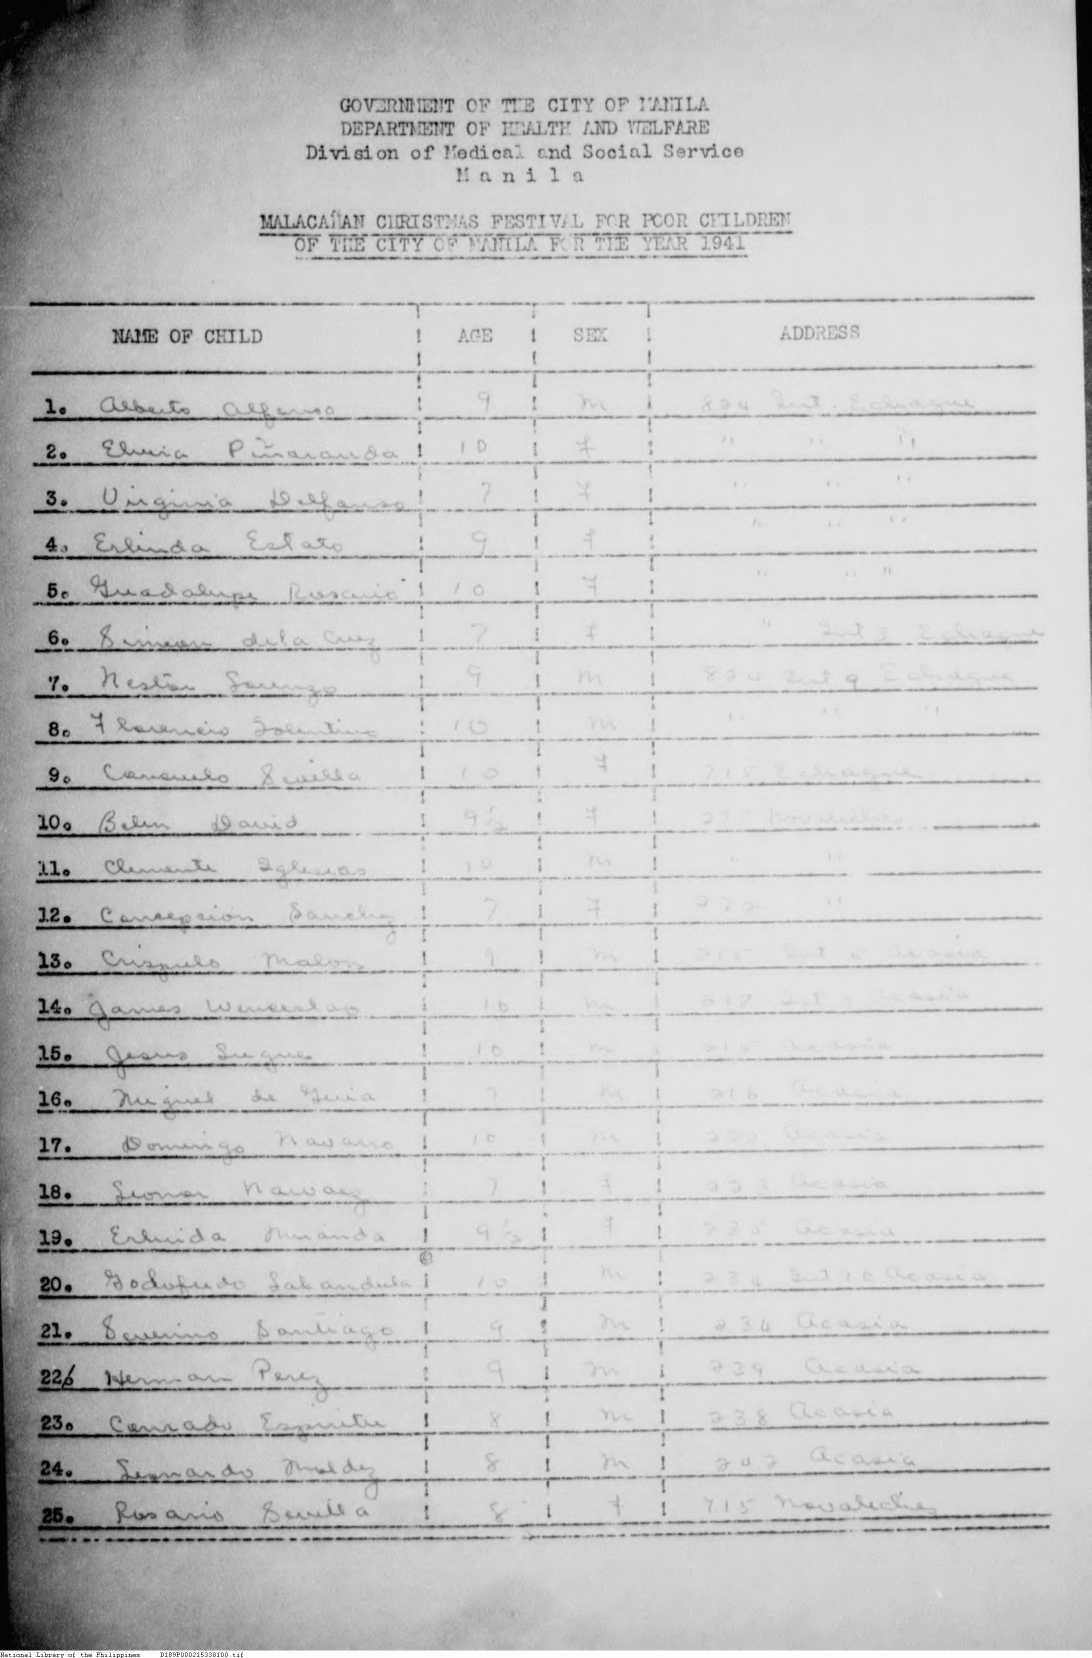 GOVERNMENT OF THE CITY OF MANILA
DEPARTMENT OF HEALTH AND WELFARE
Division of Medical and Social Service
M a n i l a
MALACAÑAN CHRISTMAS FESTIVAL FOR POOR CHILDREN
OF THE CITY OF MANILA FOR THE YEAR 1941
NAME OF CHILD AGE SEX ADDRESS
1. Alberto Alfonso 9 M 824 Int. Echague
2. Elvira Piñaranda 10 F " " "
3. Virginia Delfonso 7 F " " "
4. Erlinda Estato 9 F " " "
5. Guadalupe Rosario 10 F " " "
6. Simeon dela Cruz 7 F " Int 3 Echague
7. Nestor Lorenzo 9 M 824 Int 9 Echague
8. Florencio Tolentino 10 M " " "
9. Consuelo Sevilla 10 F 715 Echague
10. Belen David 9½ F Novaliches
11. Clemente Iglesias 10 M " "
12. Concepcion Sanchez 7 F 232 "
13. Crispulo Malon 9 M Int Acasia
14. James Wenceslao 10 M Int Acasia
15. Jesus Luque 10 M 215 Acasia
16. Miguel de Guia 7 M 216 Acasia
17. Domingo Navarro 10 M Acasia
18. Leonor Narvaez 7 F Acasia
19. Erlinida Miranda 9½ F 235 Acasia
20. Godofredo Labandula 10 M 234 Int 10 Acasia
21. Severino Santiago 9 M 234 Acasia
22. Herman Perez 9 M 239 Acasia
23. Conrado Espiritu 8 M 238 Acasia
24. Leonardo 8 M 202 Acasia
25. Rosario Sevilla 8 F 715 Novaliches
National Library of the Philippines D189P000215338100.tif